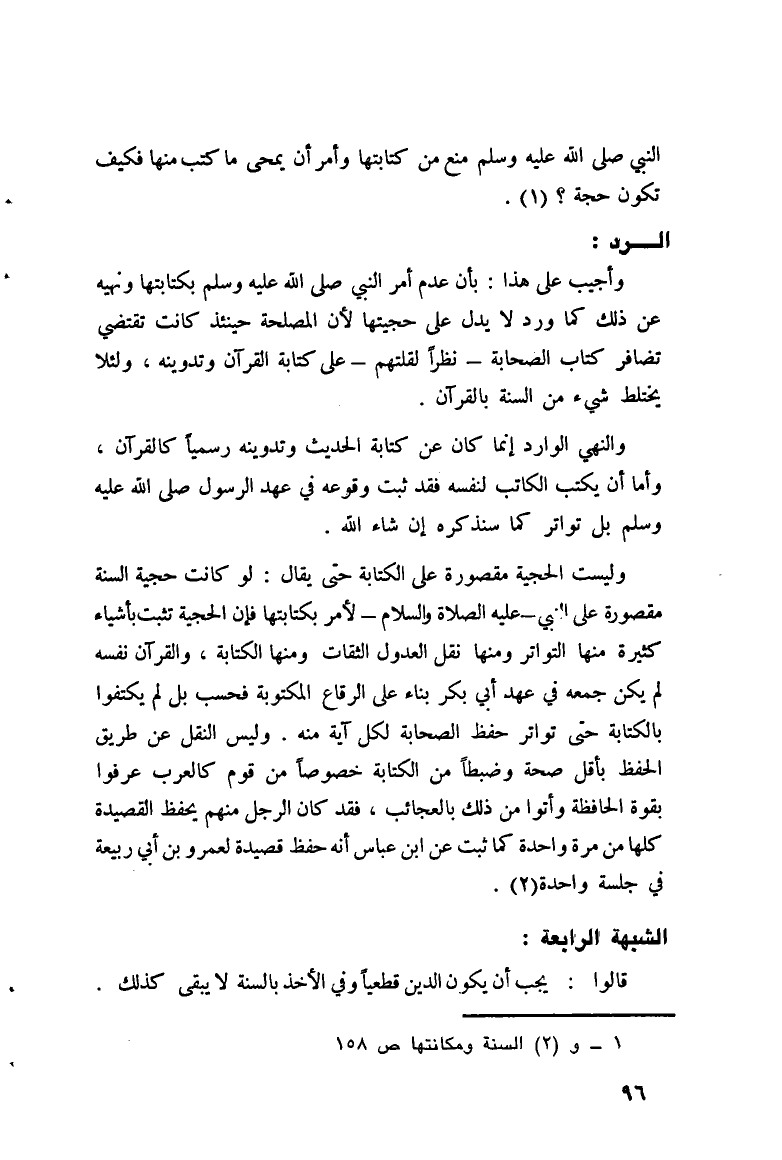 النبي صلى الله عليه وسلم منع من كتابتها وأمر أن يمحى ما كتب منها فكيف
تكون حجة ؟ (١) .
الـــرد :
وأجيب على هذا : بأن عدم أمر النبي صلى الله عليه وسلم بكتابتها ونهيه
عن ذلك كما ورد لا يدل على حجيتها لأن المصلحة حينئذ كانت تقتضي
تضافر كتاب الصحابة – نظراً لقلتهم – على كتابة القرآن وتدوينه ، ولئلا
يختلط شيء من السنة بالقرآن .
والنهي الوارد إنما كان عن كتابة الحديث وتدوينه رسمياً كالقرآن ،
وأما أن يكتب الكاتب لنفسه فقد ثبت وقوعه في عهد الرسول صلى الله عليه
وسلم بل تواتر كما سنذكره إن شاء الله .
وليست الحجية مقصورة على الكتابة حتى يقال : لو كانت حجية السنة
مقصورة على النبي –عليه الصلاة والسلام – لأمر بكتابتها فإن الحجية تثبت بأشياء
كثيرة منها التواتر ومنها نقل العدول الثقات ومنها الكتابة ، والقرآن نفسه
لم يكن جمعه في عهد أبي بكر بناء على الرقاع المكتوبة فحسب بل لم يكتفوا
بالكتابة حتى تواتر حفظ الصحابة لكل آية منه . وليس النقل عن طريق
الحفظ بأقل صحة وضبطاً من الكتابة خصوصاً من قوم كالعرب عرفوا
بقوة الحافظة وأتوا من ذلك بالعجائب ، فقد كان الرجل منهم يحفظ القصيدة
كلها من مرة واحدة كما ثبت عن ابن عباس أنه حفظ قصيدة لعمرو بن أبي ربيعة
في جلسة واحدة(٢) .
الشبهة الرابعة :
قالوا : يجب أن يكون الدين قطعياً وفي الأخذ بالسنة لا يبقى كذلك .
١ – و (٢) السنة ومكانتها ص ١٥٨
٩٦